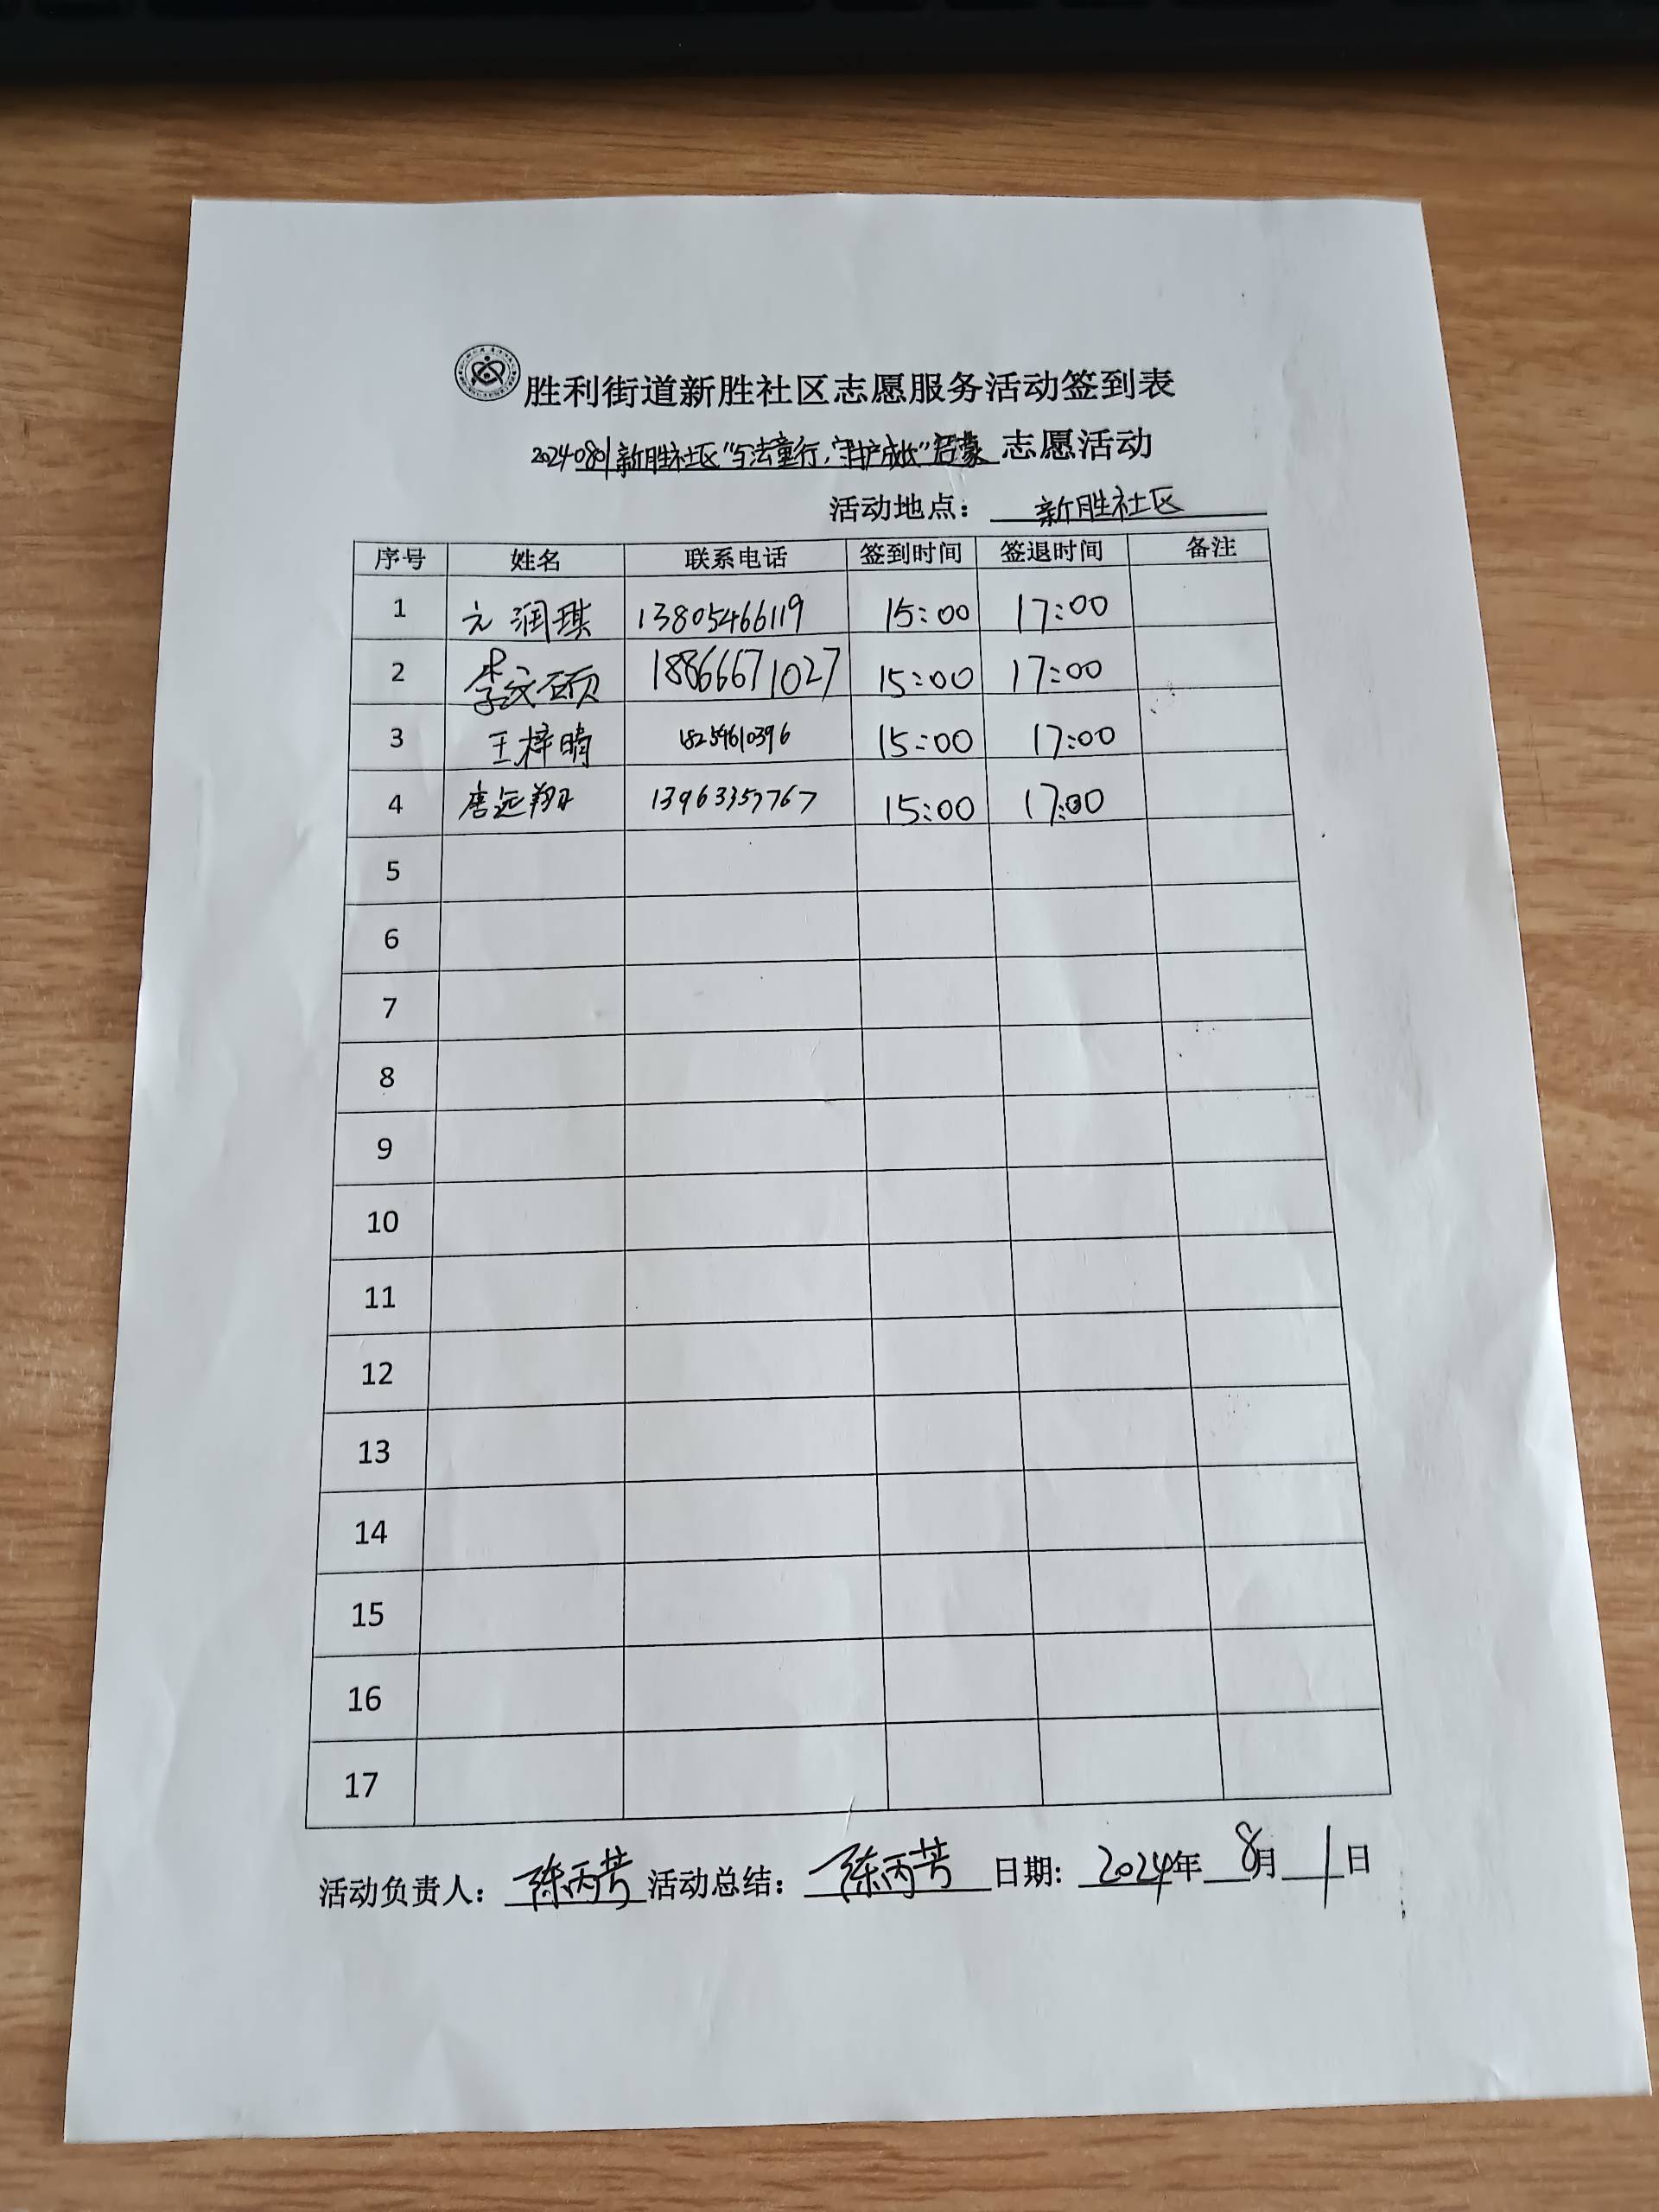 胜利街道新胜社区志愿服务活动签到表
20240801新胜社区“与法童行,守护成长”启蒙 志愿活动
活动地点: 新胜社区
序号 姓名 联系电话 签到时间 签退时间 备注
1 元润琪 13805466119 15:00 17:00
2 李文硕 18866671027 15:00 17:00
3 王梓晴 18254610396 15:00 17:00
4 唐远翔 13963357767 15:00 17:00
5
6
7
8
9
10
11
12
13
14
15
16
17
活动负责人: 陈丙芳 活动总结: 陈丙芳 日期: 2024年 8月 1日